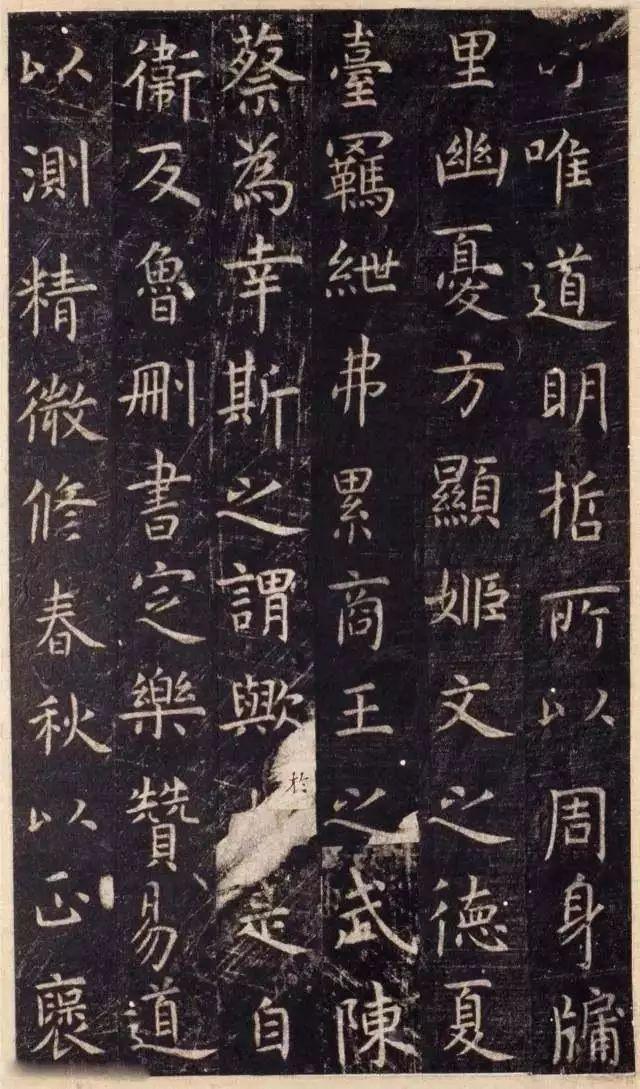 唯道明哲所以周身牖
里幽憂方顯姬文之德夏
臺羈紲弗累商王之武陳
蔡為幸斯之謂歟於是自
衞反魯刪書定樂贊易道
以測精微修春秋以正褒